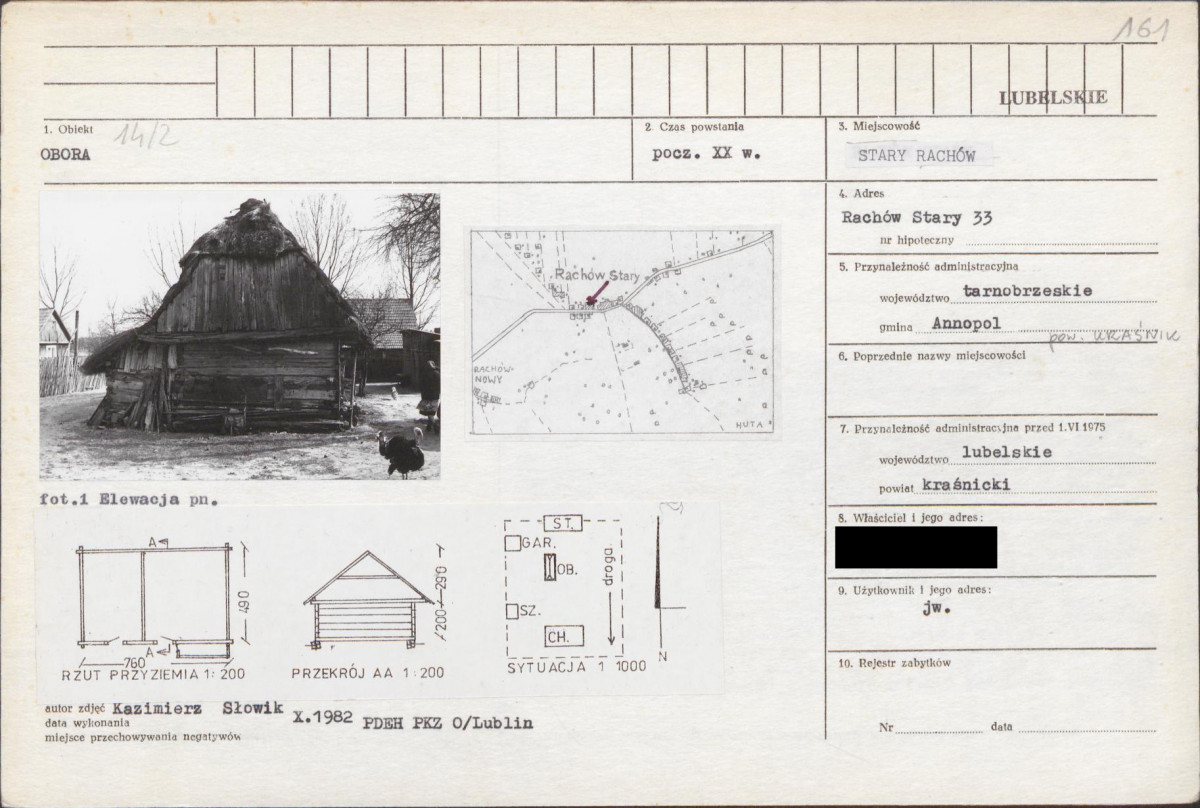 161
LUBELSKIE
1. Obiekt 14/2
OBORA
2. Czas powstania
pocz. XX w.
3. Miejscowość
STARY RACHÓW
4. Adres
Rachów Stary 33
nr hipoteczny
5. Przynależność administracyjna
województwo tarnobrzeskie
gmina Annopol
pow. KRAŚNIK
6. Poprzednie nazwy miejscowości
7. Przynależność administracyjna przed 1.VI 1975
województwo lubelskie
powiat kraśnicki
8. Właściciel i jego adres:
9. Użytkownik i jego adres:
jw.
10. Rejestr zabytków
Nr data
Rachów Stary
RACHÓW-
NOWY
HUTA
fot.1 Elewacja pn.
A
A
490
760
RZUT PRZYZIEMIA 1:200
200 290
PRZEKRÓJ AA 1:200
ST.
GAR.
OB.
SZ.
CH.
droga
SYTUACJA 1 1000
N
autor zdjęć Kazimierz Słowik
data wykonania X.1982 PDEH PKZ O/Lublin
miejsce przechowywania negatywów